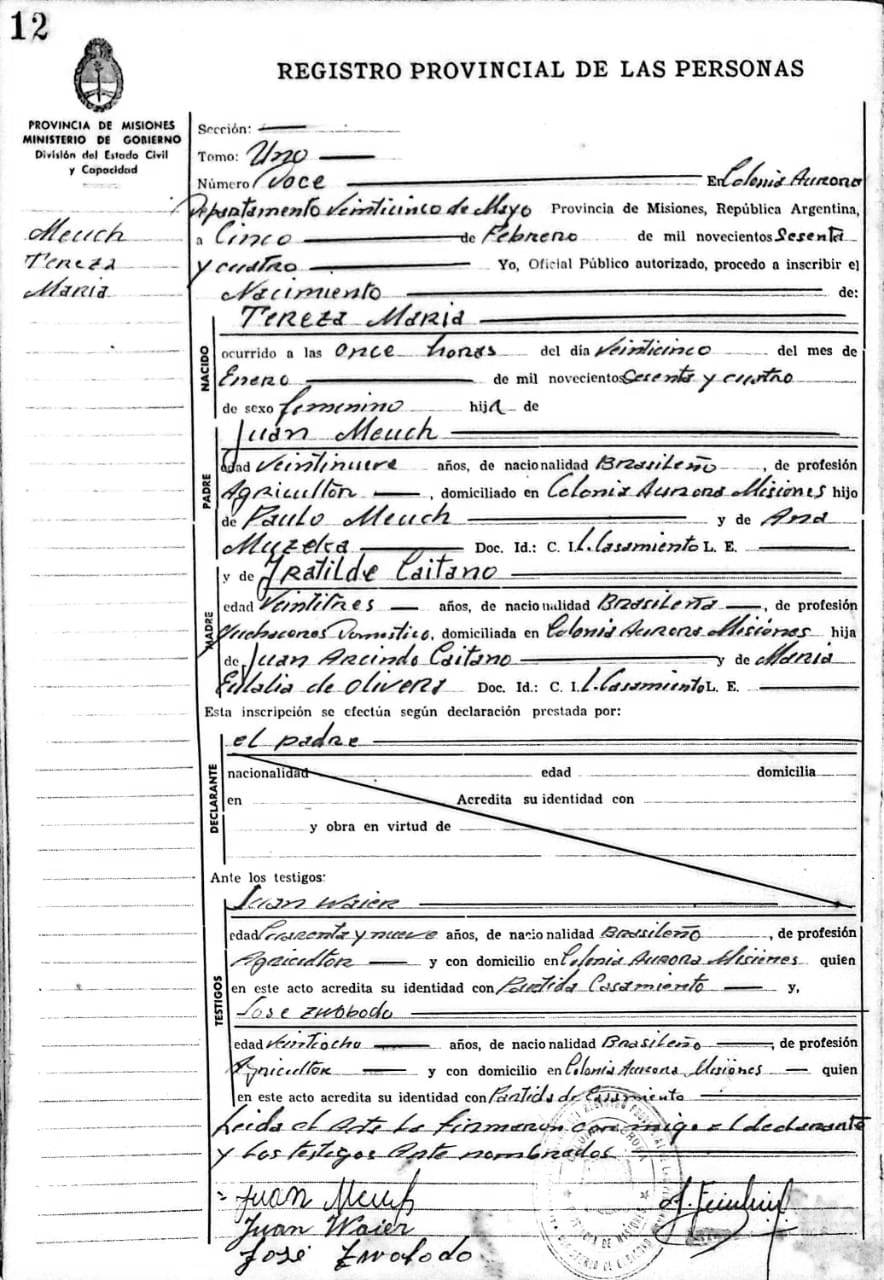 12
REGISTRO PROVINCIAL DE LAS PERSONAS
PROVINCIA DE MISIONES
MINISTERIO DE GOBIERNO
División del Estado Civil
y Capacidad
Meuch
Tereza
Maria
Sección:
Tomo: Uno
Número Doce En Colonia Aurora
Departamento Veinticinco de Mayo Provincia de Misiones, República Argentina,
a Cinco de Febrero de mil novecientos Sesenta
y cuatro Yo, Oficial Público autorizado, procedo a inscribir el
Nacimiento de:
NACIDO
Tereza Maria
ocurrido a las once horas del día Veinticinco del mes de
Enero de mil novecientos Sesenta y cuatro
de sexo femenino hija de
PADRE
Juan Meuch
edad Veintinueve años, de nacionalidad Brasileño, de profesión
Agricultor, domiciliado en Colonia Aurora Misiones hijo
de Paulo Meuch y de Ana
Muzeka Doc. Id.: C. I. L. Casamiento L. E.
MADRE
y de Iratilde Caitano
edad Veintitres años, de nacionalidad Brasileña, de profesión
Quehaceres Domestico, domiciliada en Colonia Aurora Misiones hija
de Juan Arcindo Caitano y de Maria
Eulalia de Olivera Doc. Id.: C. I. L. Casamiento L. E.
Esta inscripción se efectúa según declaración prestada por:
DECLARANTE
el padre
nacionalidad edad domicilia
en Acredita su identidad con
y obra en virtud de
Ante los testigos:
TESTIGOS
Juan Waier
edad Cuarenta y nueve años, de nacionalidad Brasileño, de profesión
Agricultor y con domicilio en Colonia Aurora Misiones quien
en este acto acredita su identidad con Partida Casamiento y,
Jose Zwobodo
edad Veintiocho años, de nacionalidad Brasileño, de profesión
Agricultor y con domicilio en Colonia Aurora Misiones quien
en este acto acredita su identidad con Partida de Casamiento
Leida el Acta La firmaron conmigo el declarante
y Los testigos Ante nombrados
Juan Meuch
Juan Waier
José Zwobodo